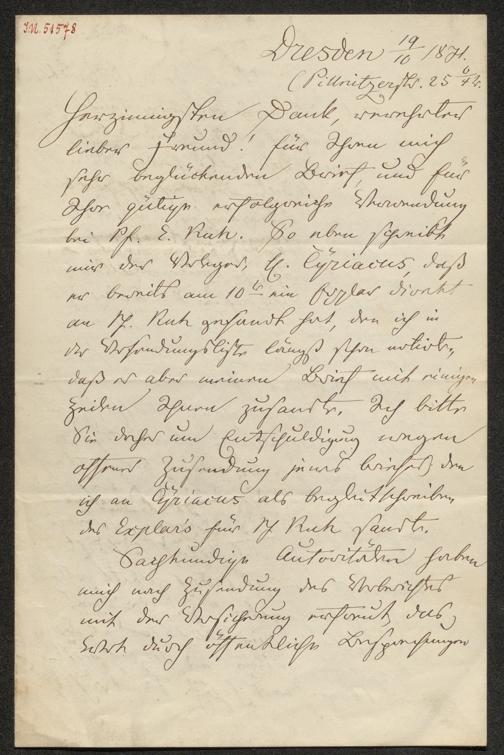 I.N. 51578
Dresden 19/10 1871.
(Pillnitzerstr. 25
Herzinnigsten Dank, verehrter
lieber Freund! für Ihren mich
sehr beglückenden Brief, und für
Ihre gütige erfolgreiche Verwendung
bei Pf. E. So eben schreibt
mir der Verleger, C. Cyriacus, daß
er bereits am 10 ein Expplar direkt
an gesandt hat, den ich in
der Versendungsliste längst schon notirte,
daß er aber meinen Brief mit einigen
Zeilen Ihnen zusandte. Ich bitte
Sie daher um Entschuldigung wegen
offener Zusendung jenes Briefes, den
ich an Cyriacus als Begleitschreiben
des Explars für sandte.
Sachkundige Autoritäten haben
mich nach Zusendung des Vorberichtes
mit der Versicherung erfreut, das
Werk durch öffentliche Besprechungen